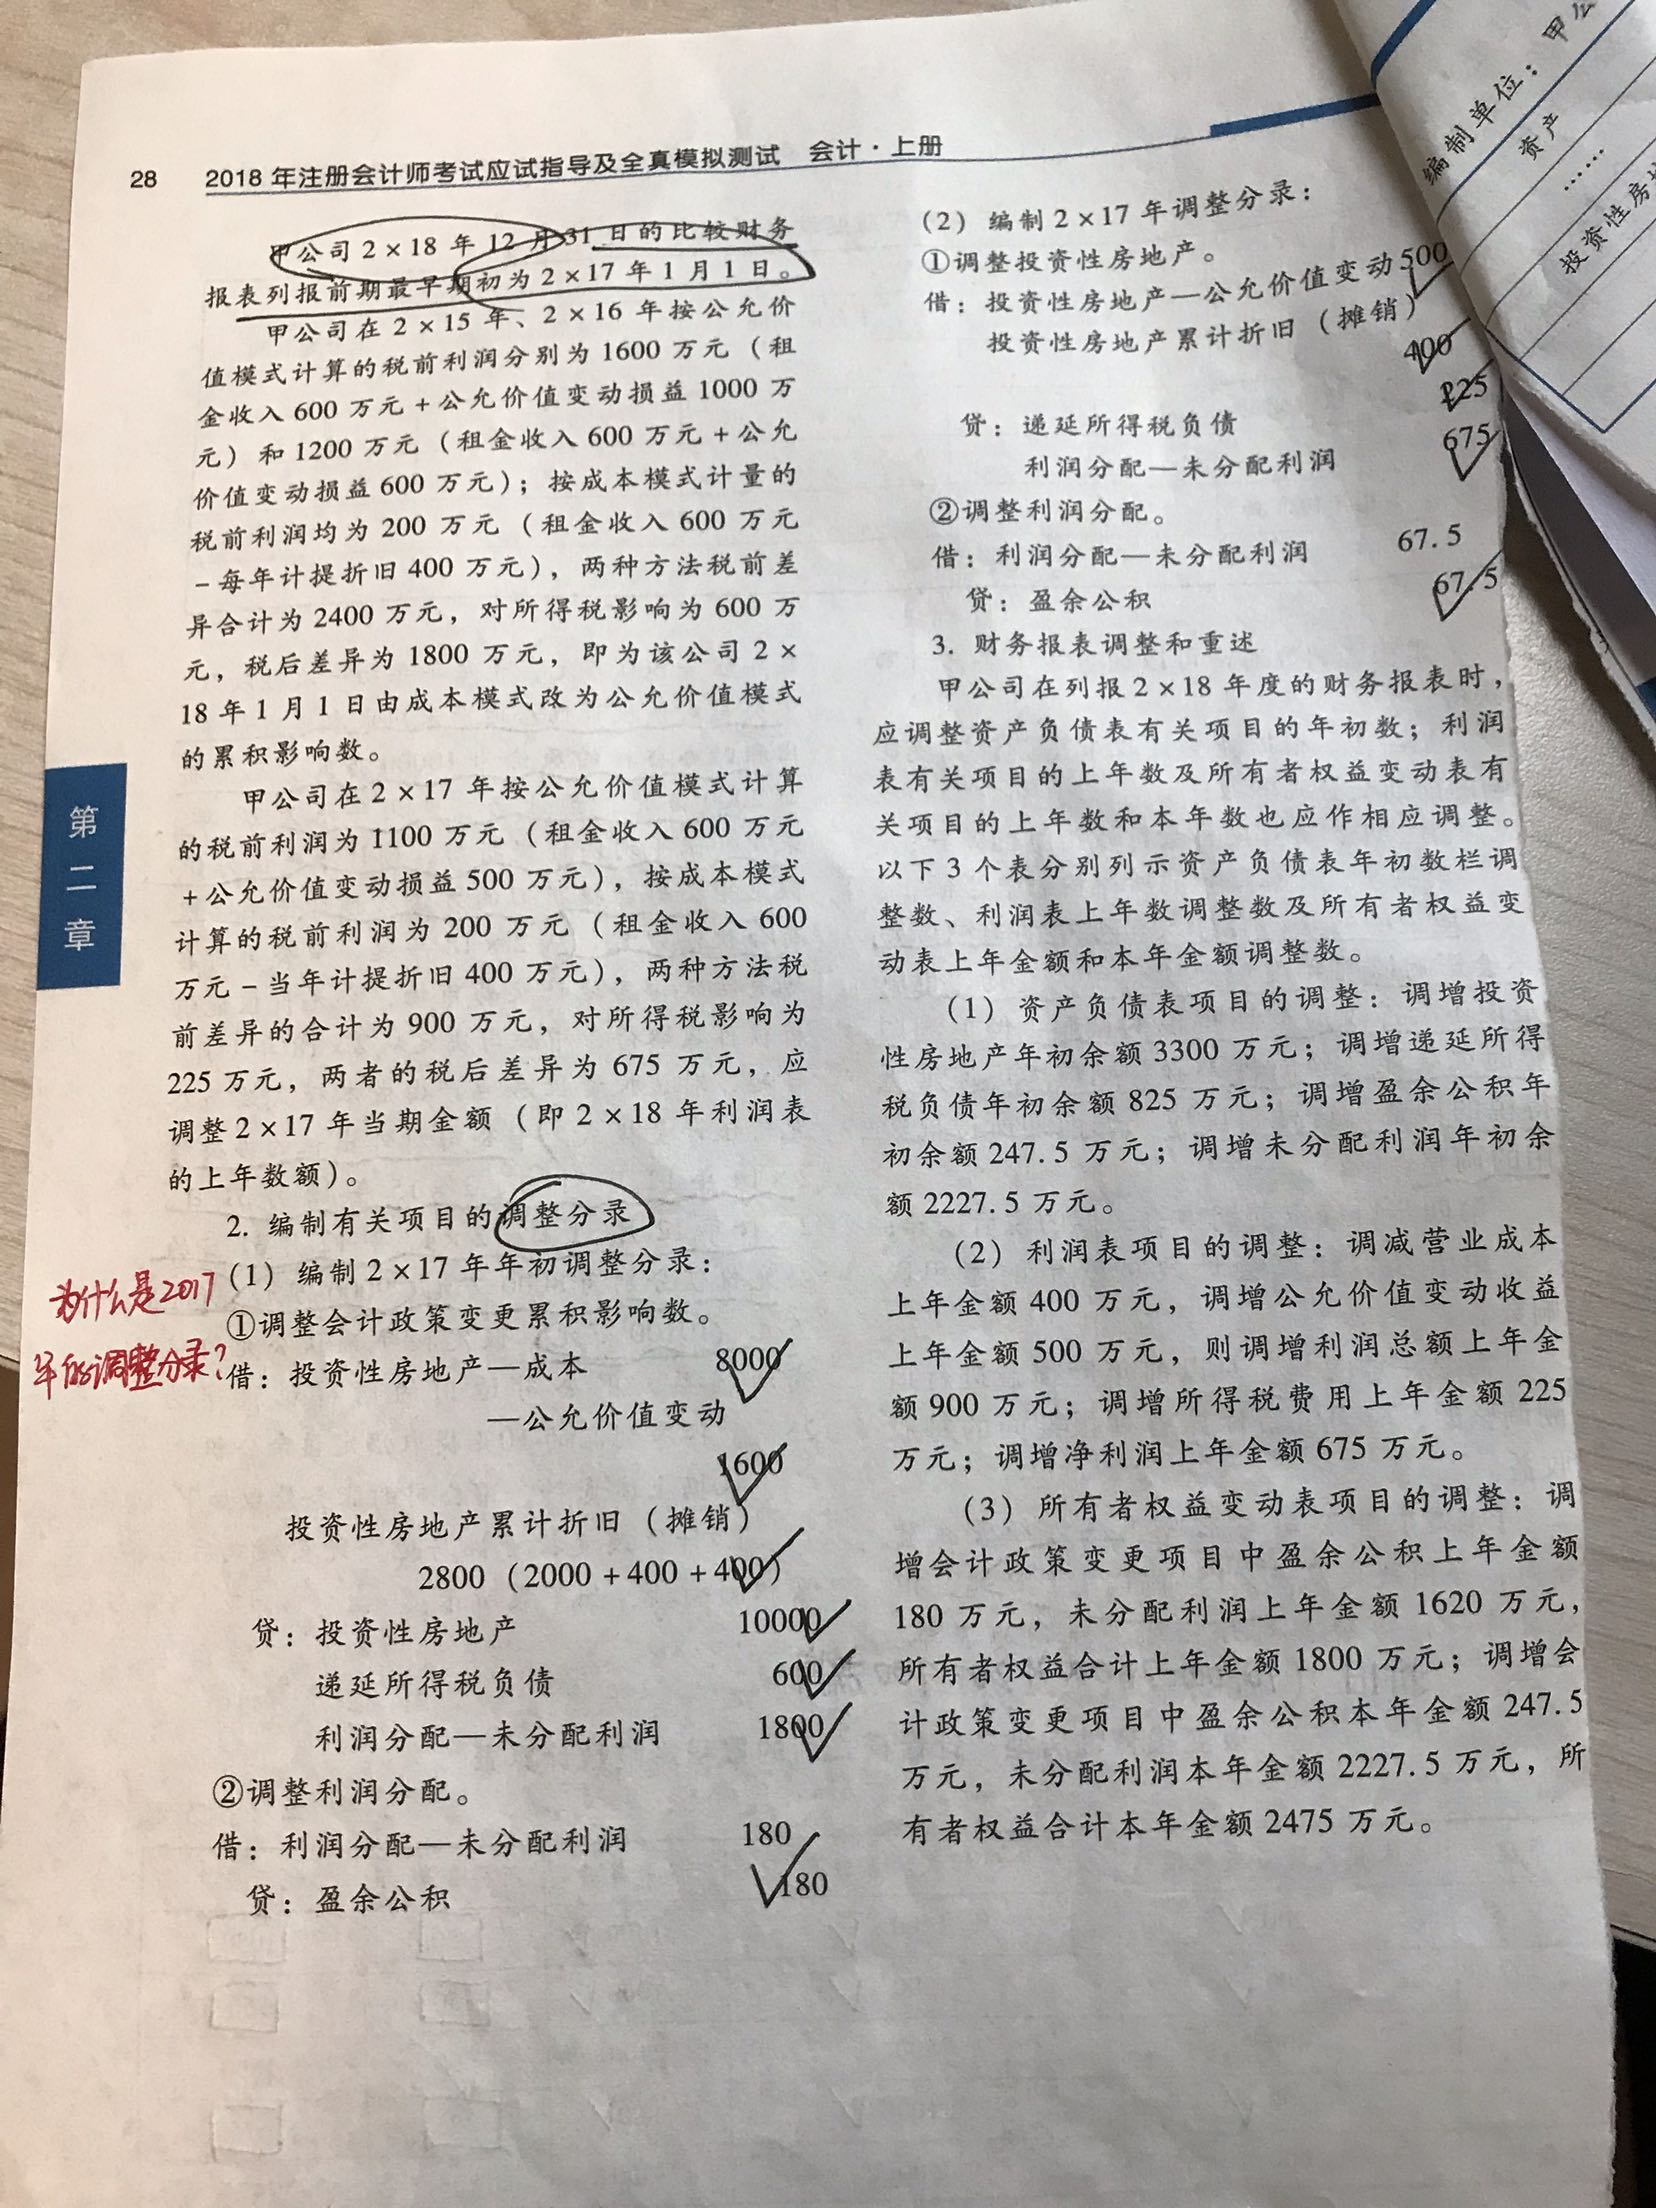 28 2018年注册会计师考试应试指导及全真模拟测试 会计·上册
甲公司2×18年12月31日的比较财务
报表列报前期最早期初为2×17年1月1日。
甲公司在2×15年、2×16年按公允价
值模式计算的税前利润分别为1600万元(租
金收入600万元+公允价值变动损益1000万
元)和1200万元(租金收入600万元+公允
价值变动损益600万元);按成本模式计量的
税前利润均为200万元(租金收入600万元
-每年计提折旧400万元),两种方法税前差
异合计为2400万元,对所得税影响为600万
元,税后差异为1800万元,即为该公司2×
18年1月1日由成本模式改为公允价值模式
的累积影响数。
甲公司在2×17年按公允价值模式计算
的税前利润为1100万元(租金收入600万元
+公允价值变动损益500万元),按成本模式
计算的税前利润为200万元(租金收入600
万元-当年计提折旧400万元),两种方法税
前差异的合计为900万元,对所得税影响为
225万元,两者的税后差异为675万元,应
调整2×17年当期金额(即2×18年利润表
的上年数额)。
2. 编制有关项目的调整分录
(1)编制2×17年年初调整分录:
①调整会计政策变更累积影响数。
借:投资性房地产—成本 8000
—公允价值变动
1600
投资性房地产累计折旧(摊销)
2800(2000+400+400)
贷:投资性房地产 10000
递延所得税负债 600
利润分配—未分配利润 1800
②调整利润分配。
借:利润分配—未分配利润 180
贷:盈余公积 180
为什么是2017
年的调整分录?
第
二
章
(2)编制2×17年调整分录:
①调整投资性房地产。
借:投资性房地产—公允价值变动500
投资性房地产累计折旧(摊销)
400
贷:递延所得税负债 225
利润分配—未分配利润 675
②调整利润分配。
借:利润分配—未分配利润 67.5
贷:盈余公积 67.5
3. 财务报表调整和重述
甲公司在列报2×18年度的财务报表时,
应调整资产负债表有关项目的年初数;利润
表有关项目的上年数及所有者权益变动表有
关项目的上年数和本年数也应作相应调整。
以下3个表分别列示资产负债表年初数栏调
整数、利润表上年数调整数及所有者权益变
动表上年金额和本年金额调整数。
(1)资产负债表项目的调整:调增投资
性房地产年初余额3300万元;调增递延所得
税负债年初余额825万元;调增盈余公积年
初余额247.5万元;调增未分配利润年初余
额2227.5万元。
(2)利润表项目的调整:调减营业成本
上年金额400万元,调增公允价值变动收益
上年金额500万元,则调增利润总额上年金
额900万元;调增所得税费用上年金额225
万元;调增净利润上年金额675万元。
(3)所有者权益变动表项目的调整:调
增会计政策变更项目中盈余公积上年金额
180万元,未分配利润上年金额1620万元,
所有者权益合计上年金额1800万元;调增会
计政策变更项目中盈余公积本年金额247.5
万元,未分配利润本年金额2227.5万元,所
有者权益合计本年金额2475万元。
编制单位:甲公
资产
……
投资性房地